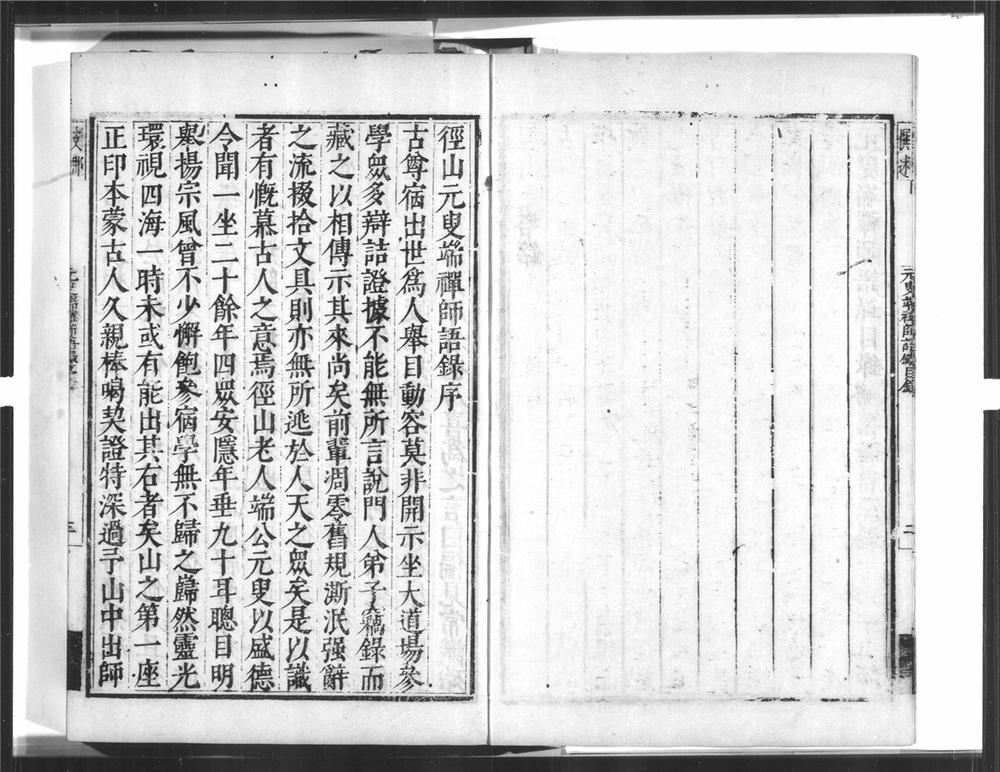 元叟端禪師語錄目錄
二
徑山元叟端禪師語錄序
古尊宿出世爲人舉目動容莫非開示坐大道場參
學衆多辯詰證據不能無所言說門人弟子竊錄而
藏之以相傳示其來尚矣前輩凋零舊規漸泯强辭
之流掇拾文具則亦無所逃於人天之衆矣是以識
者有慨慕古人之意焉徑山老人端公元叟以盛德
令聞一坐二十餘年四衆安隱年垂九十耳聰目明
舉揚宗風曾不少懈飽參宿學無不歸之巋然靈光
環視四海一時未或有能出其右者矣山之第一座
正印本蒙古人久親棒喝契證特深過予山中出師
三